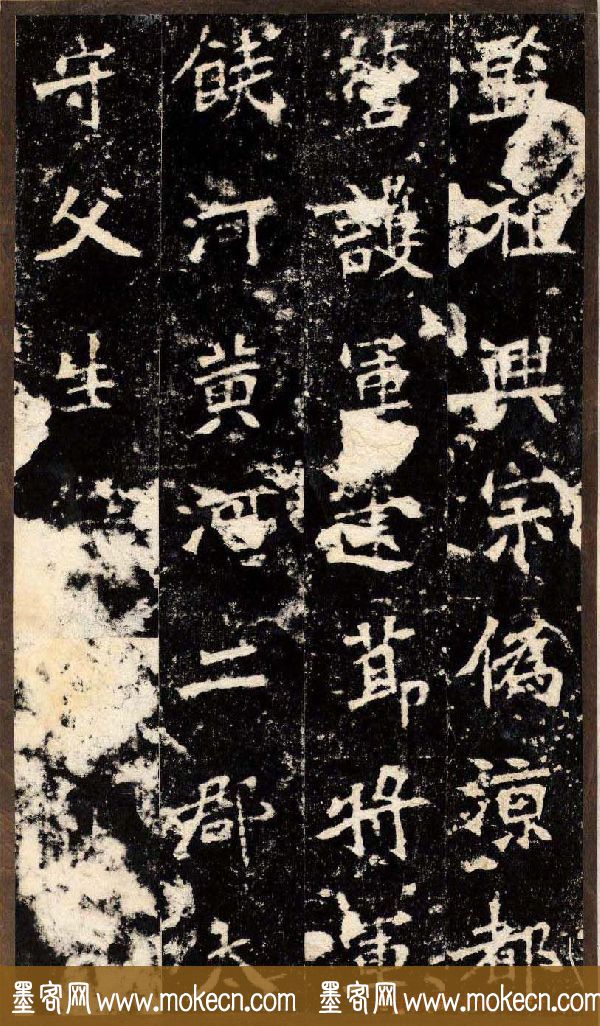 监祖興宗偽涼都
營護軍建節將軍
饒河黃河二郡太
守父生
墨客网 www.mokecn.com 墨客网 www.mokecn.com